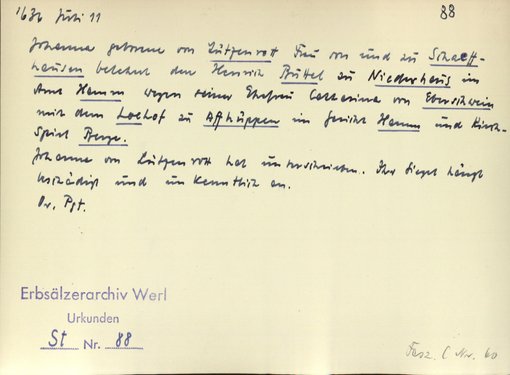 1636 Juli 11
88
Johanna geborene von Lützenrott Frau von und zu Schaaff-
hausen belehnt den Henrich Büttel zu Niederhaus im
Amt Hamm wegen seiner Ehefrau Catharina von Eberschwein
mit dem Loehof zu Affhüppen im Gericht Hamm und Kirch-
spiel Berge.
Johanna von Lützenrott hat unterschrieben. Ihr Siegel hängt
beschädigt und unkenntlich an.
Or. Pgt.
Erbsälzerarchiv Werl
Urkunden
St Nr. 88
Fasz. C Nr. 60